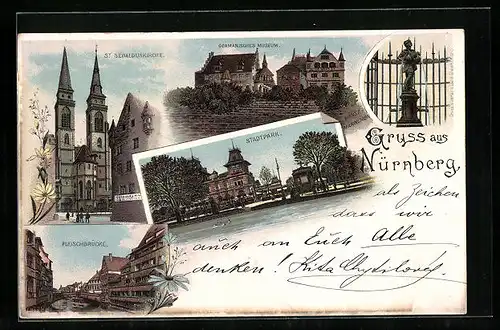 ST SEBALDUSKIRCHE.
GERMANISCHES MUSEUM.
STADTPARK.
FLEISCHBRÜCKE.
Gruss aus
Nürnberg,
als Zeichen
dass wir
auch an Euch Alle
denken!